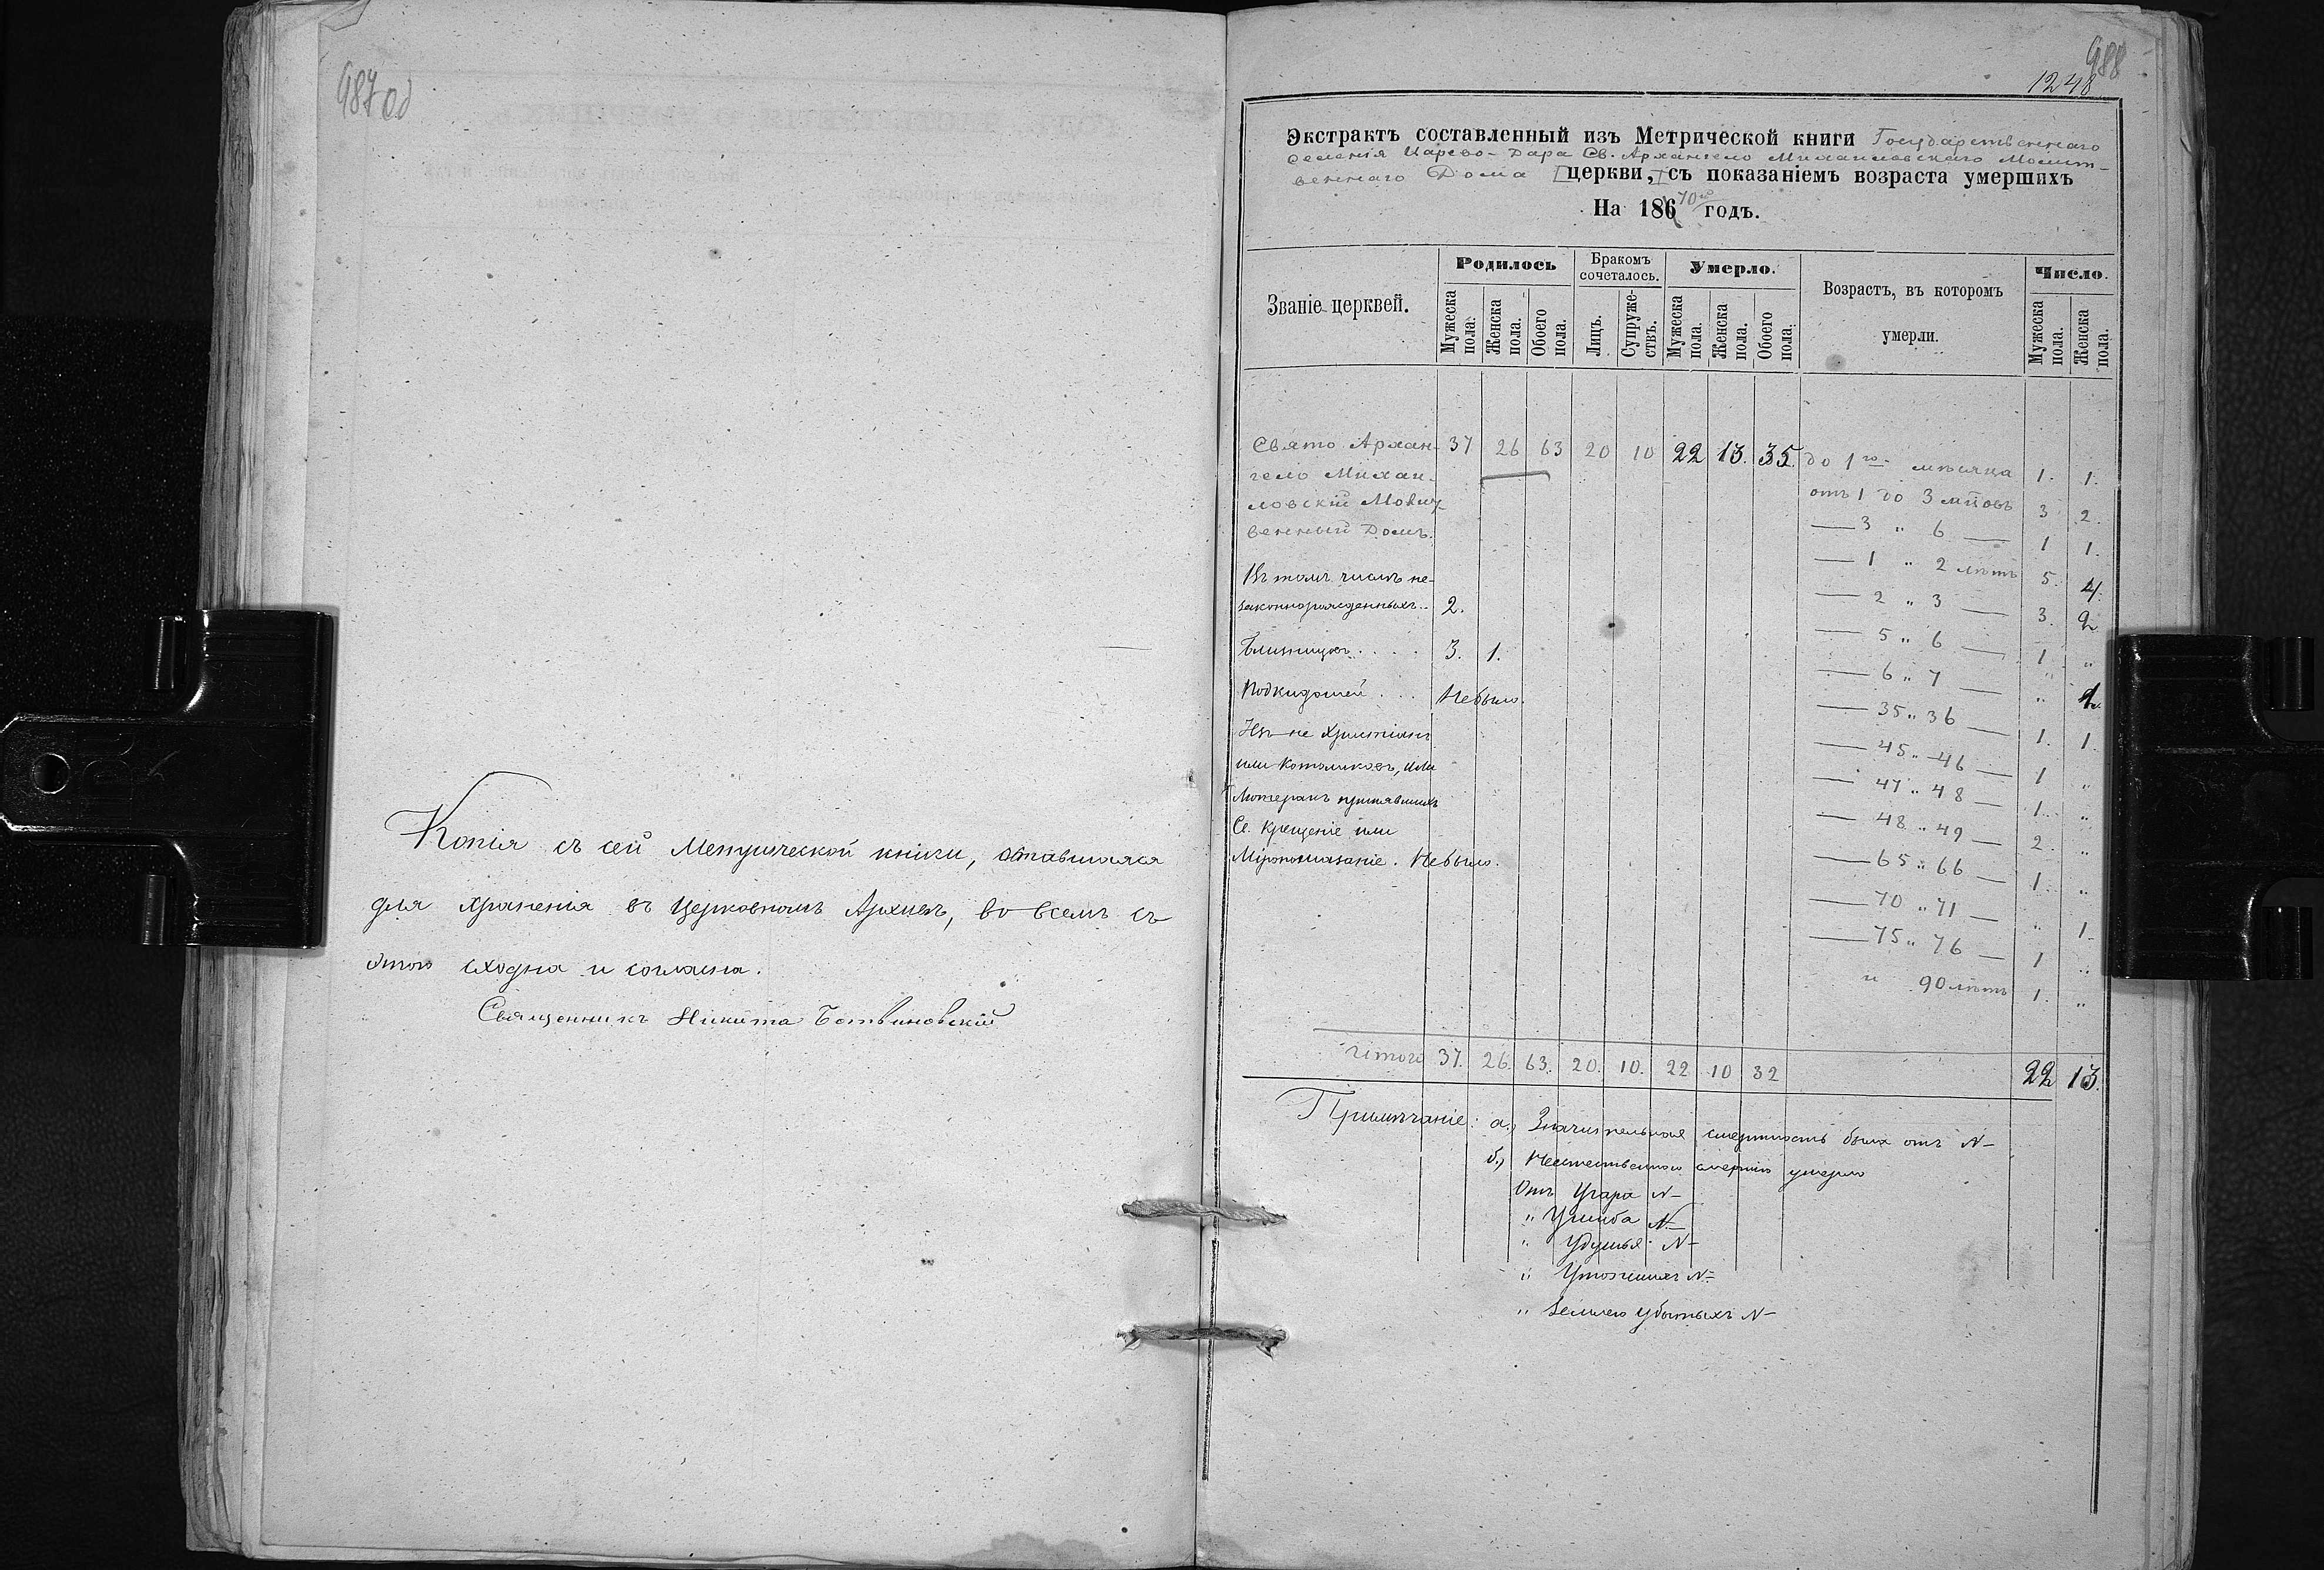 987 об
Копія съ сей Метрической книги, оставшаяся
для храненія въ Церковномъ Архивѣ, во всемъ съ
этою сходна и согласна.
Священникъ Никита Ботвиновскій
988
1248
Экстрактъ составленный изъ Метрической книги Государственнаго
селенія Царево-Дара Св. Архангело Михаиловскаго Молит-
веннаго Дома церкви, съ показаніемъ возраста умершихъ
На 186 70й годъ.
Званіе церквей.
Родилось
Мужеска пола.
Женска пола.
Обоего пола.
Бракомъ сочеталось.
Лицъ.
Супружествъ.
Умерло.
Мужеска пола.
Женска пола.
Обоего пола.
Возрастъ, въ которомъ
умерли.
Число.
Мужеска пола.
Женска пола.
Свято Архан- 37 26 63 20 10 22 13. 35. до 1го мѣсяца 1. 1.
гело Михаи-
ловскій Молит-
венный Домъ.
отъ 1 до 3 м̃цовъ 3 2.
— 3 „ 6 — 1 1.
— 1 „ 2 лѣтъ 5. 4.
— 2 „ 3 — 3. 2
— 5 „ 6 — 1 „
— 6 „ 7 — „ 1
— 35 „ 36 — 1. 1.
— 45 „ 46 — 1 „
— 47 „ 48 — 1. „
— 48 „ 49 — 2. „
— 65 „ 66 — 1. „
— 70 „ 71 — „ 1.
— 75 „ 76 — 1 „
и 90 лѣтъ 1. „
Въ томъ числѣ не-
законнорожденныхъ.. 2.
Близнецовъ . . . . 3. 1.
Подкидышей . . . Небыло.
Изъ не Христіанъ
или Католиковъ, или
Лютеранъ принявшихъ
Св. Крещеніе или
Мѵропомазаніе. Небыло.
Итого 37. 26. 63. 20. 10. 22 10 32 22 13.
Примѣчаніе: а., Значительная смертность была отъ N-
б., Неестественною смертію умерло
Отъ Угара N-
„ Ушиба N-
„ Удушья N-
„ Утопшихъ N-
„ Землею убитыхъ N-